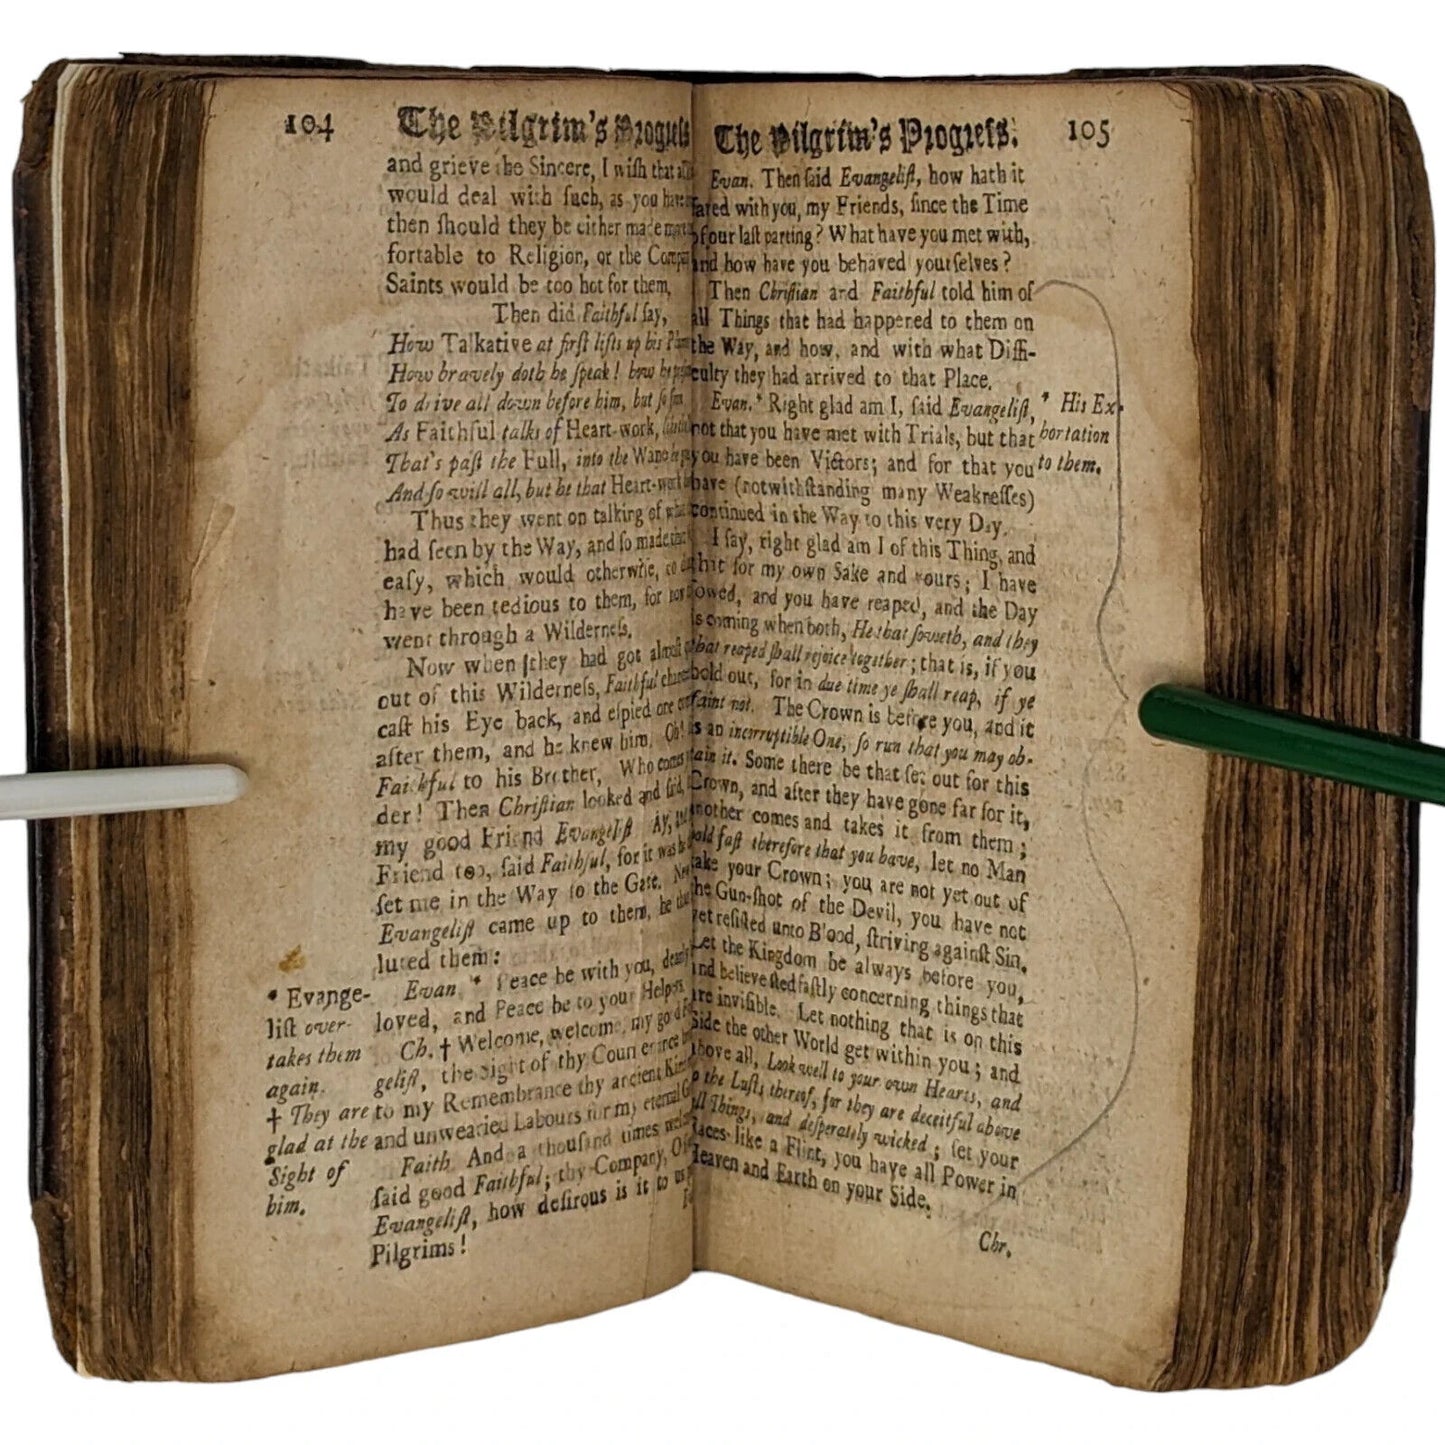 104 The Pilgrim's Progreſs
and grieve the Sincere, I wiſh that
would deal with ſuch, as you have
then ſhould they be either made
fortable to Religion, or the
Saints would be too hot for them,
Then did Faithful ſay,
How Talkative at firſt lifts up his
How bravely doth he ſpeak! how he
To drive all down before him, but ſo
As Faithful talks of Heart-work,
That's paſt the Full, into the Wane
And ſo will all, but he that Heart-work
Thus they went on talking of what
had ſeen by the Way, and ſo made
eaſy, which would otherwiſe,
have been tedious to them, for now
went through a Wilderneſs.
Now when they had got almoſt
out of this Wilderneſs, Faithful
caſt his Eye back, and eſpied one
after them, and he knew him. Oh!
Faithful to his Brother, Who comes
der! Then Chriſtian looked and ſaid,
my good Friend Evangeliſt Ay, and
Friend too, ſaid Faithful, for it was he
ſet me in the Way to the Gate. Now
Evangeliſt came up to them,
luted them:
* Evange-
liſt over-
takes them
again.
† They are
glad at the
Sight of
him.
Evan. * Peace be with you, dearly
loved, and Peace be to your Helpers
Ch. † Welcome, welcome, my good
geliſt, the Sight of thy Countenance
to my Remembrance thy ancient
and unwearied Labours for my eternal
Faith. And a thouſand times
ſaid good Faithful; thy Company,
Evangeliſt, how deſirous is it to us
Pilgrims!
The Pilgrim's Progreſs. 105
Evan. Then ſaid Evangeliſt, how hath it
fared with you, my Friends, ſince the Time
of our laſt parting? What have you met with,
and how have you behaved yourſelves?
Then Chriſtian and Faithful told him of
all Things that had happened to them on
the Way, and how, and with what Diffi-
culty they had arrived to that Place.
Evan.* Right glad am I, ſaid Evangeliſt,
not that you have met with Trials, but that
you have been Victors; and for that you
have (notwithſtanding many Weakneſſes)
continued in the Way to this very Day.
* His Ex-
hortation
to them.
I ſay, right glad am I of this Thing, and
that for my own Sake and yours; I have
ſowed, and you have reaped, and the Day
is coming when both, He that ſoweth, and they
that reaped ſhall rejoice together; that is, if you
hold out, for in due time ye ſhall reap, if ye
faint not. The Crown is before you, and it
is an incorruptible One, ſo run that you may ob-
tain it. Some there be that ſet out for this
Crown, and after they have gone far for it,
another comes and takes it from them;
hold faſt therefore that you have, let no Man
take your Crown; you are not yet out of
the Gun-ſhot of the Devil, you have not
yet reſiſted unto Blood, ſtriving againſt Sin.
Let the Kingdom be always before you,
and believe ſtedfaſtly concerning things that
are inviſible. Let nothing that is on this
Side the other World get within you; and
above all, Look well to your own Hearts, and
to the Luſts thereof, for they are deceitful above
all Things, and deſperately wicked; ſet your
Faces like a Flint, you have all Power in
Heaven and Earth on your Side.
Chr.